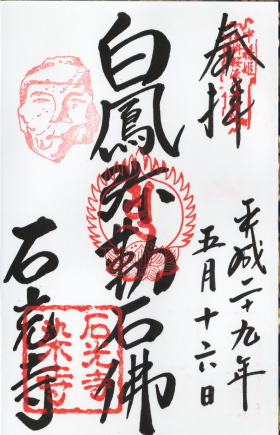 奉拝
平成二十九年
五月十六日
白鳳弥勒石佛
石光寺
石光寺
染寺